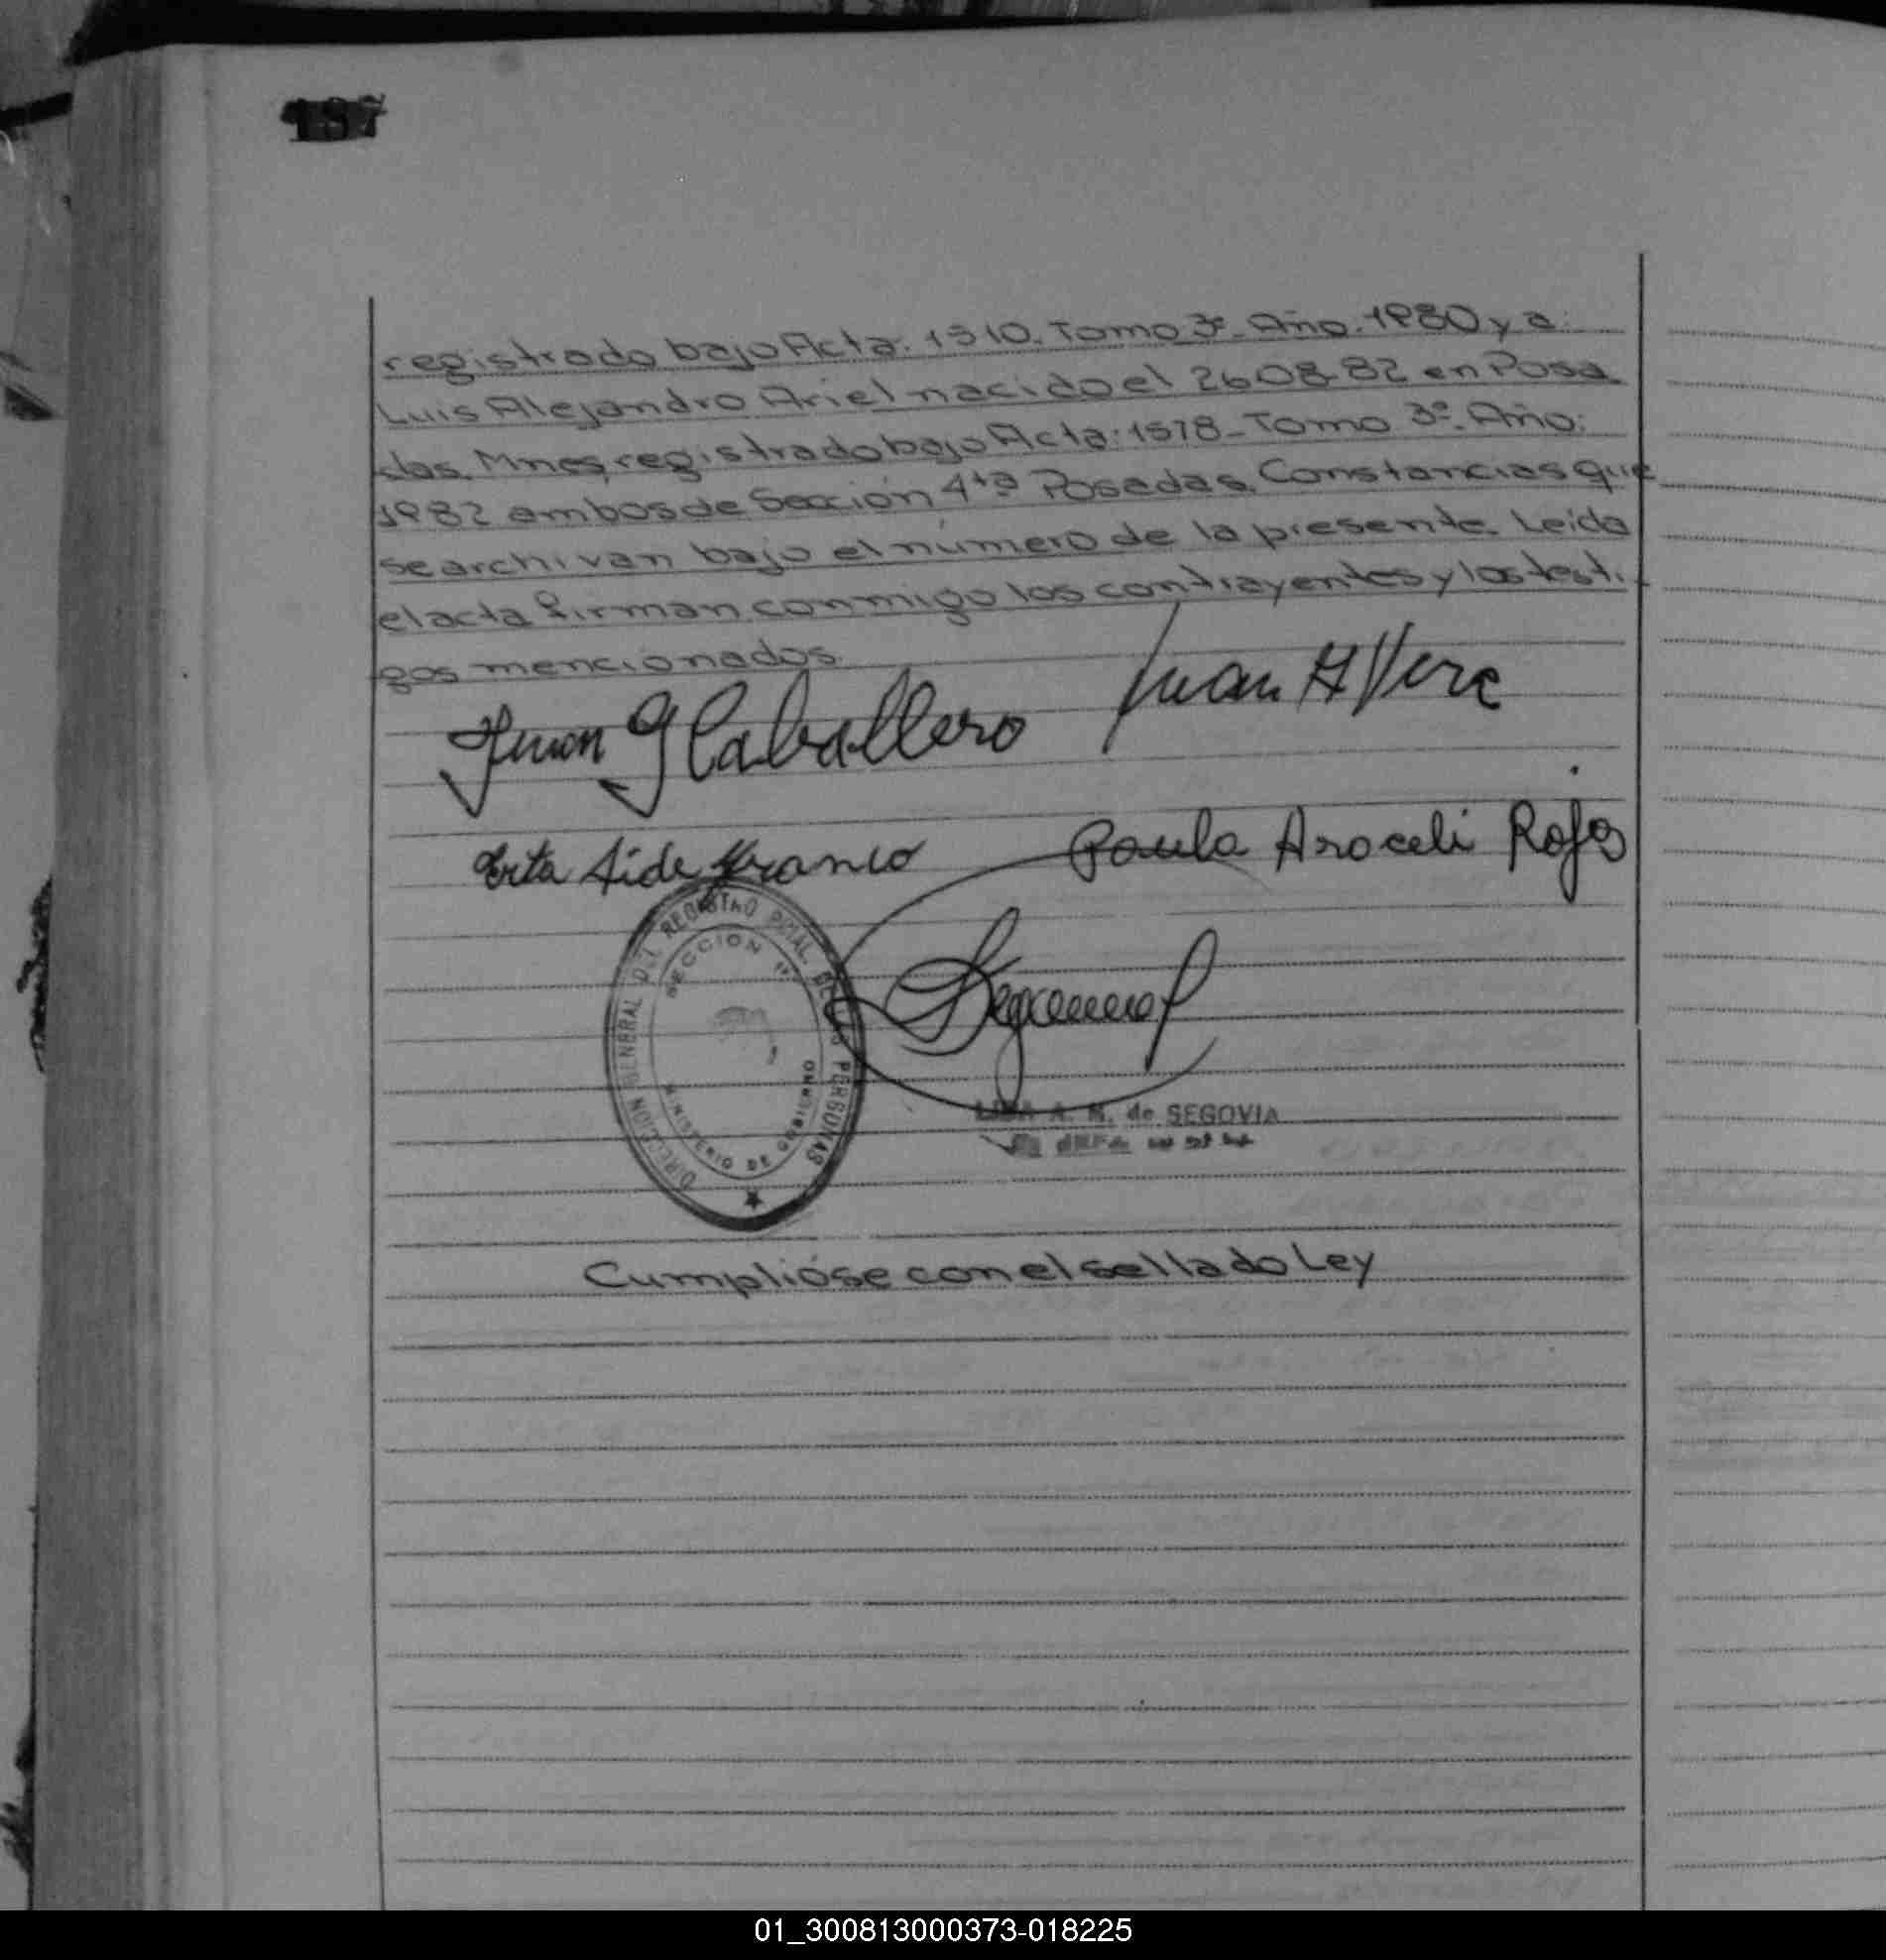 187
registrado bajo Acta: 1310. Tomo 3º. Año. 1980 y a:
Luis Alejandro Ariel nacido el 26.08.82 en Posa
das. Mnes, registrado bajo Acta: 1578 - Tomo 3º. Año:
1982 ambos de Sección 4ta Posadas. Constancias que
se archivan bajo el número de la presente. Leída
el acta firman conmigo los contrayentes y los testi-
gos mencionados.
Juan G Caballero
Juan A Vera
Aide Franco
Paula Araceli Rojas
DIRECCION GENERAL DEL REGISTRO PCIAL. DE LAS PERSONAS
SECCION 1ª
MINISTERIO DE GOBIERNO
A. M. de SEGOVIA
JEFA
Cumplióse con el sellado Ley
01_300813000373-018225